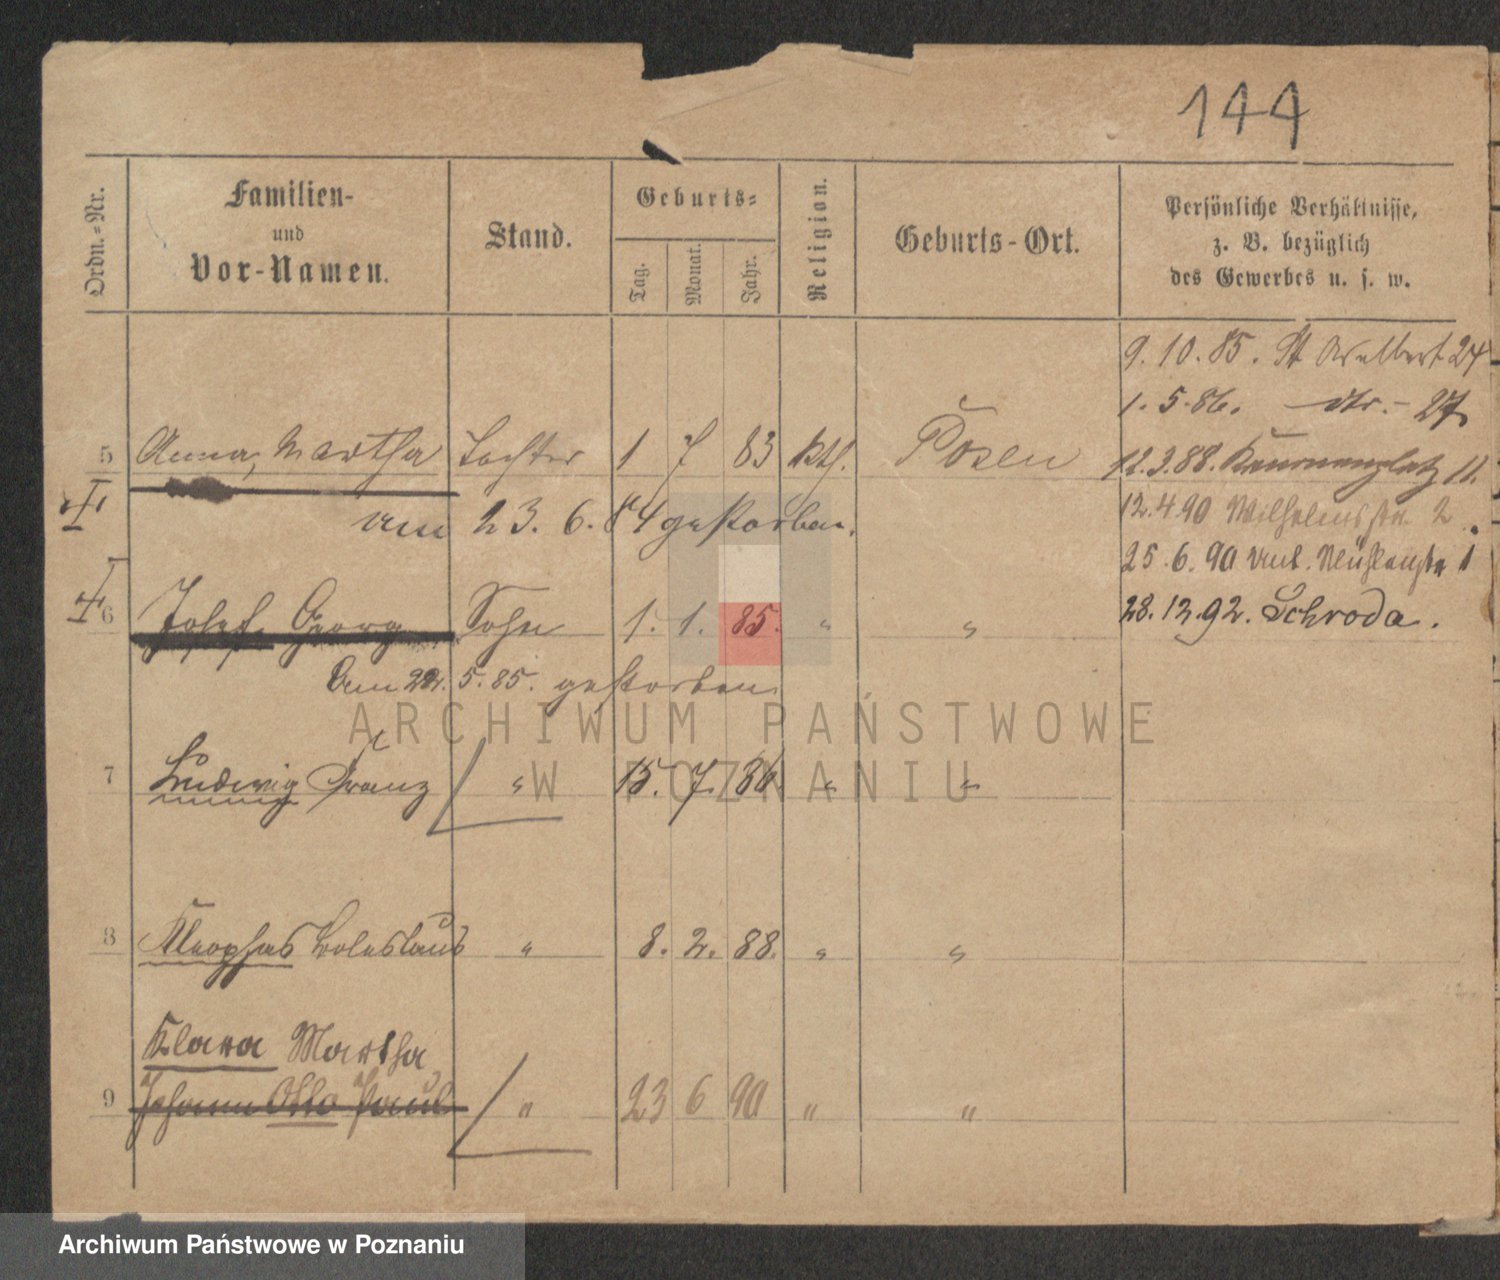 144
Ordn.-Nr.
Familien-
und
Vor-Namen.
Stand.
Geburts-
Tag.
Monat.
Jahr.
Religion.
Geburts-Ort.
Persönliche Verhältnisse,
z. B. bezüglich
des Gewerbes u. s. w.
9. 10. 85. St Adalbert 24
1. 5. 86. dto. 27
5 Anna, Martha Tochter 1 7 83 kth. Posen
12.3.88. 11.
am 23. 6. 84 gestorben.
12.4.90 Wilhelmsstr. 2
25.6.90 Unt. Mühlenstr 1
6 Josef Georg Sohn 1. 1. 85. " "
28.12.92. Schroda.
Am 22. 5. 85. gestorben
ARCHIWUM PAŃSTWOWE
W POZNANIU
7 Ludwig Franz " 15. 7. 86 " "
8 Kleophas Boleslaus " 8. 2. 88. " "
Klara Martha
9 Johann Otto Paul " 23 6 90 " "
Archiwum Państwowe w Poznaniu